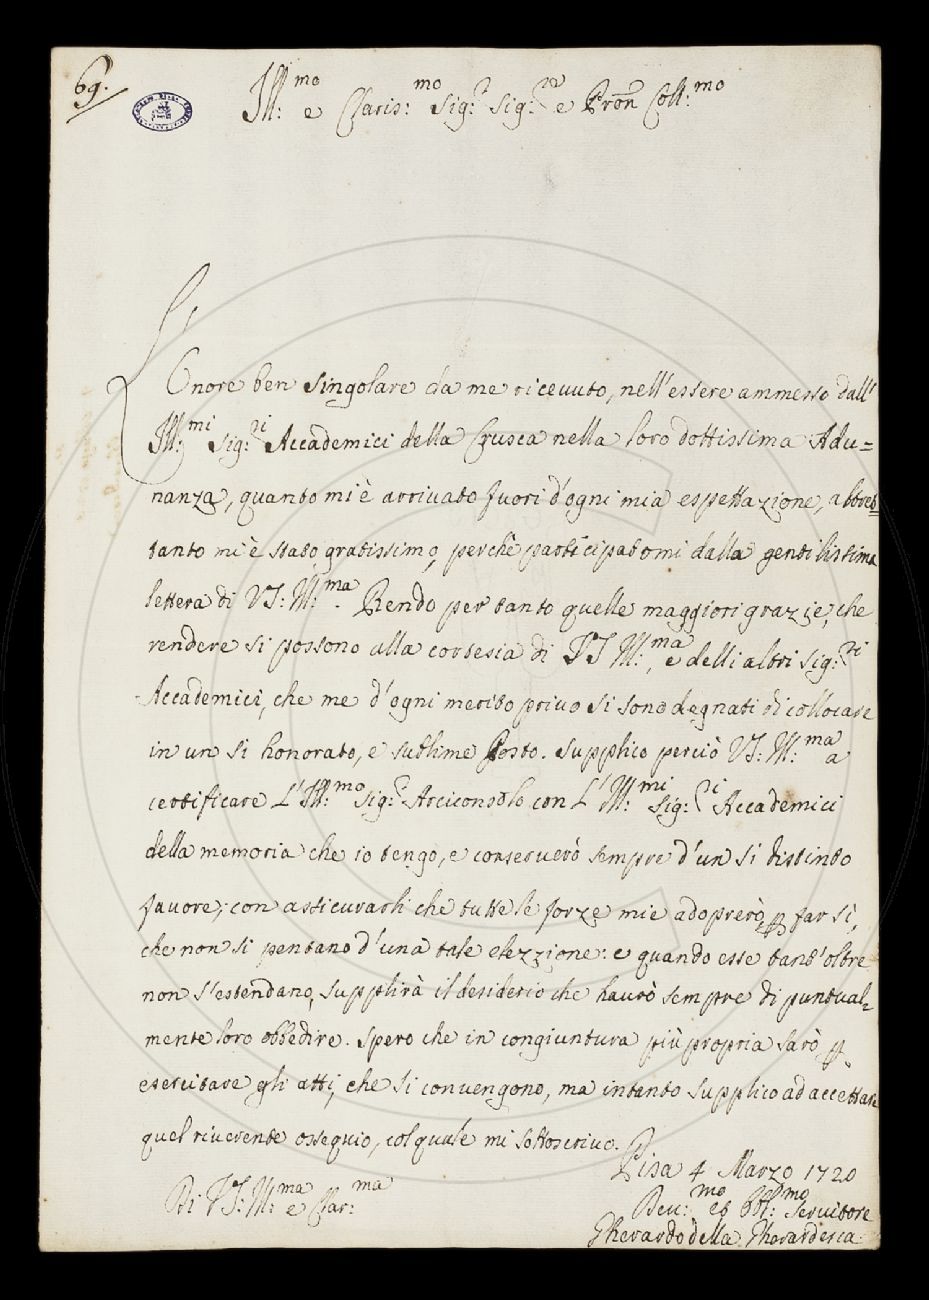 69.
Ill:mo e Clariss:mo Sig:r Sig:re e Pron Coll:mo
L'
Onore ben singolare da me ricevuto, nell'essere ammesso dall'
Ill:mi Sig:ri Accademici della Crusca nella loro dottissima Adu=
nanza, quanto mi è arrivato fuori d'ogni mia espettazione, altret=
tanto mi è stato gratissimo, perchè participatomi dalla gentilissima
lettera di VS: Ill:ma. Rendo per tanto quelle maggiori grazie, che
rendere si possono alla cortesia di VS Ill:ma, e delli altri Sig:ri
Accademici, che me d'ogni merito privo si sono degnati di collocare
in un si honorato, e sublime Posto. Supplico perciò VS: Ill:ma a
certificare L'Ill:mo Sig:r Arciconsolo con L'Ill:mi Sig:ri Accademici
della memoria che io tengo, e conserverò sempre d'un si distinto
favore; con assicurarli che tutte le forze mie adoprerò p far sì,
che non si pentano d'una tale elezzione: e quando esse tant'oltre
non s'estendano, supplirà il desiderio che haurò sempre di puntual=
mente loro obbedire. Spero che in congiuntura più propria sarò p
esercitare gli atti, che si convengono, ma intanto supplico ad accettare
quel riverente ossequio, col quale mi sottoscrivo.
Pisa 4 Marzo 1720
Di VS: Ill:ma e Clar:ma
Dev:mo et Obb:mo Servitore
Gherardo della Gherardesca